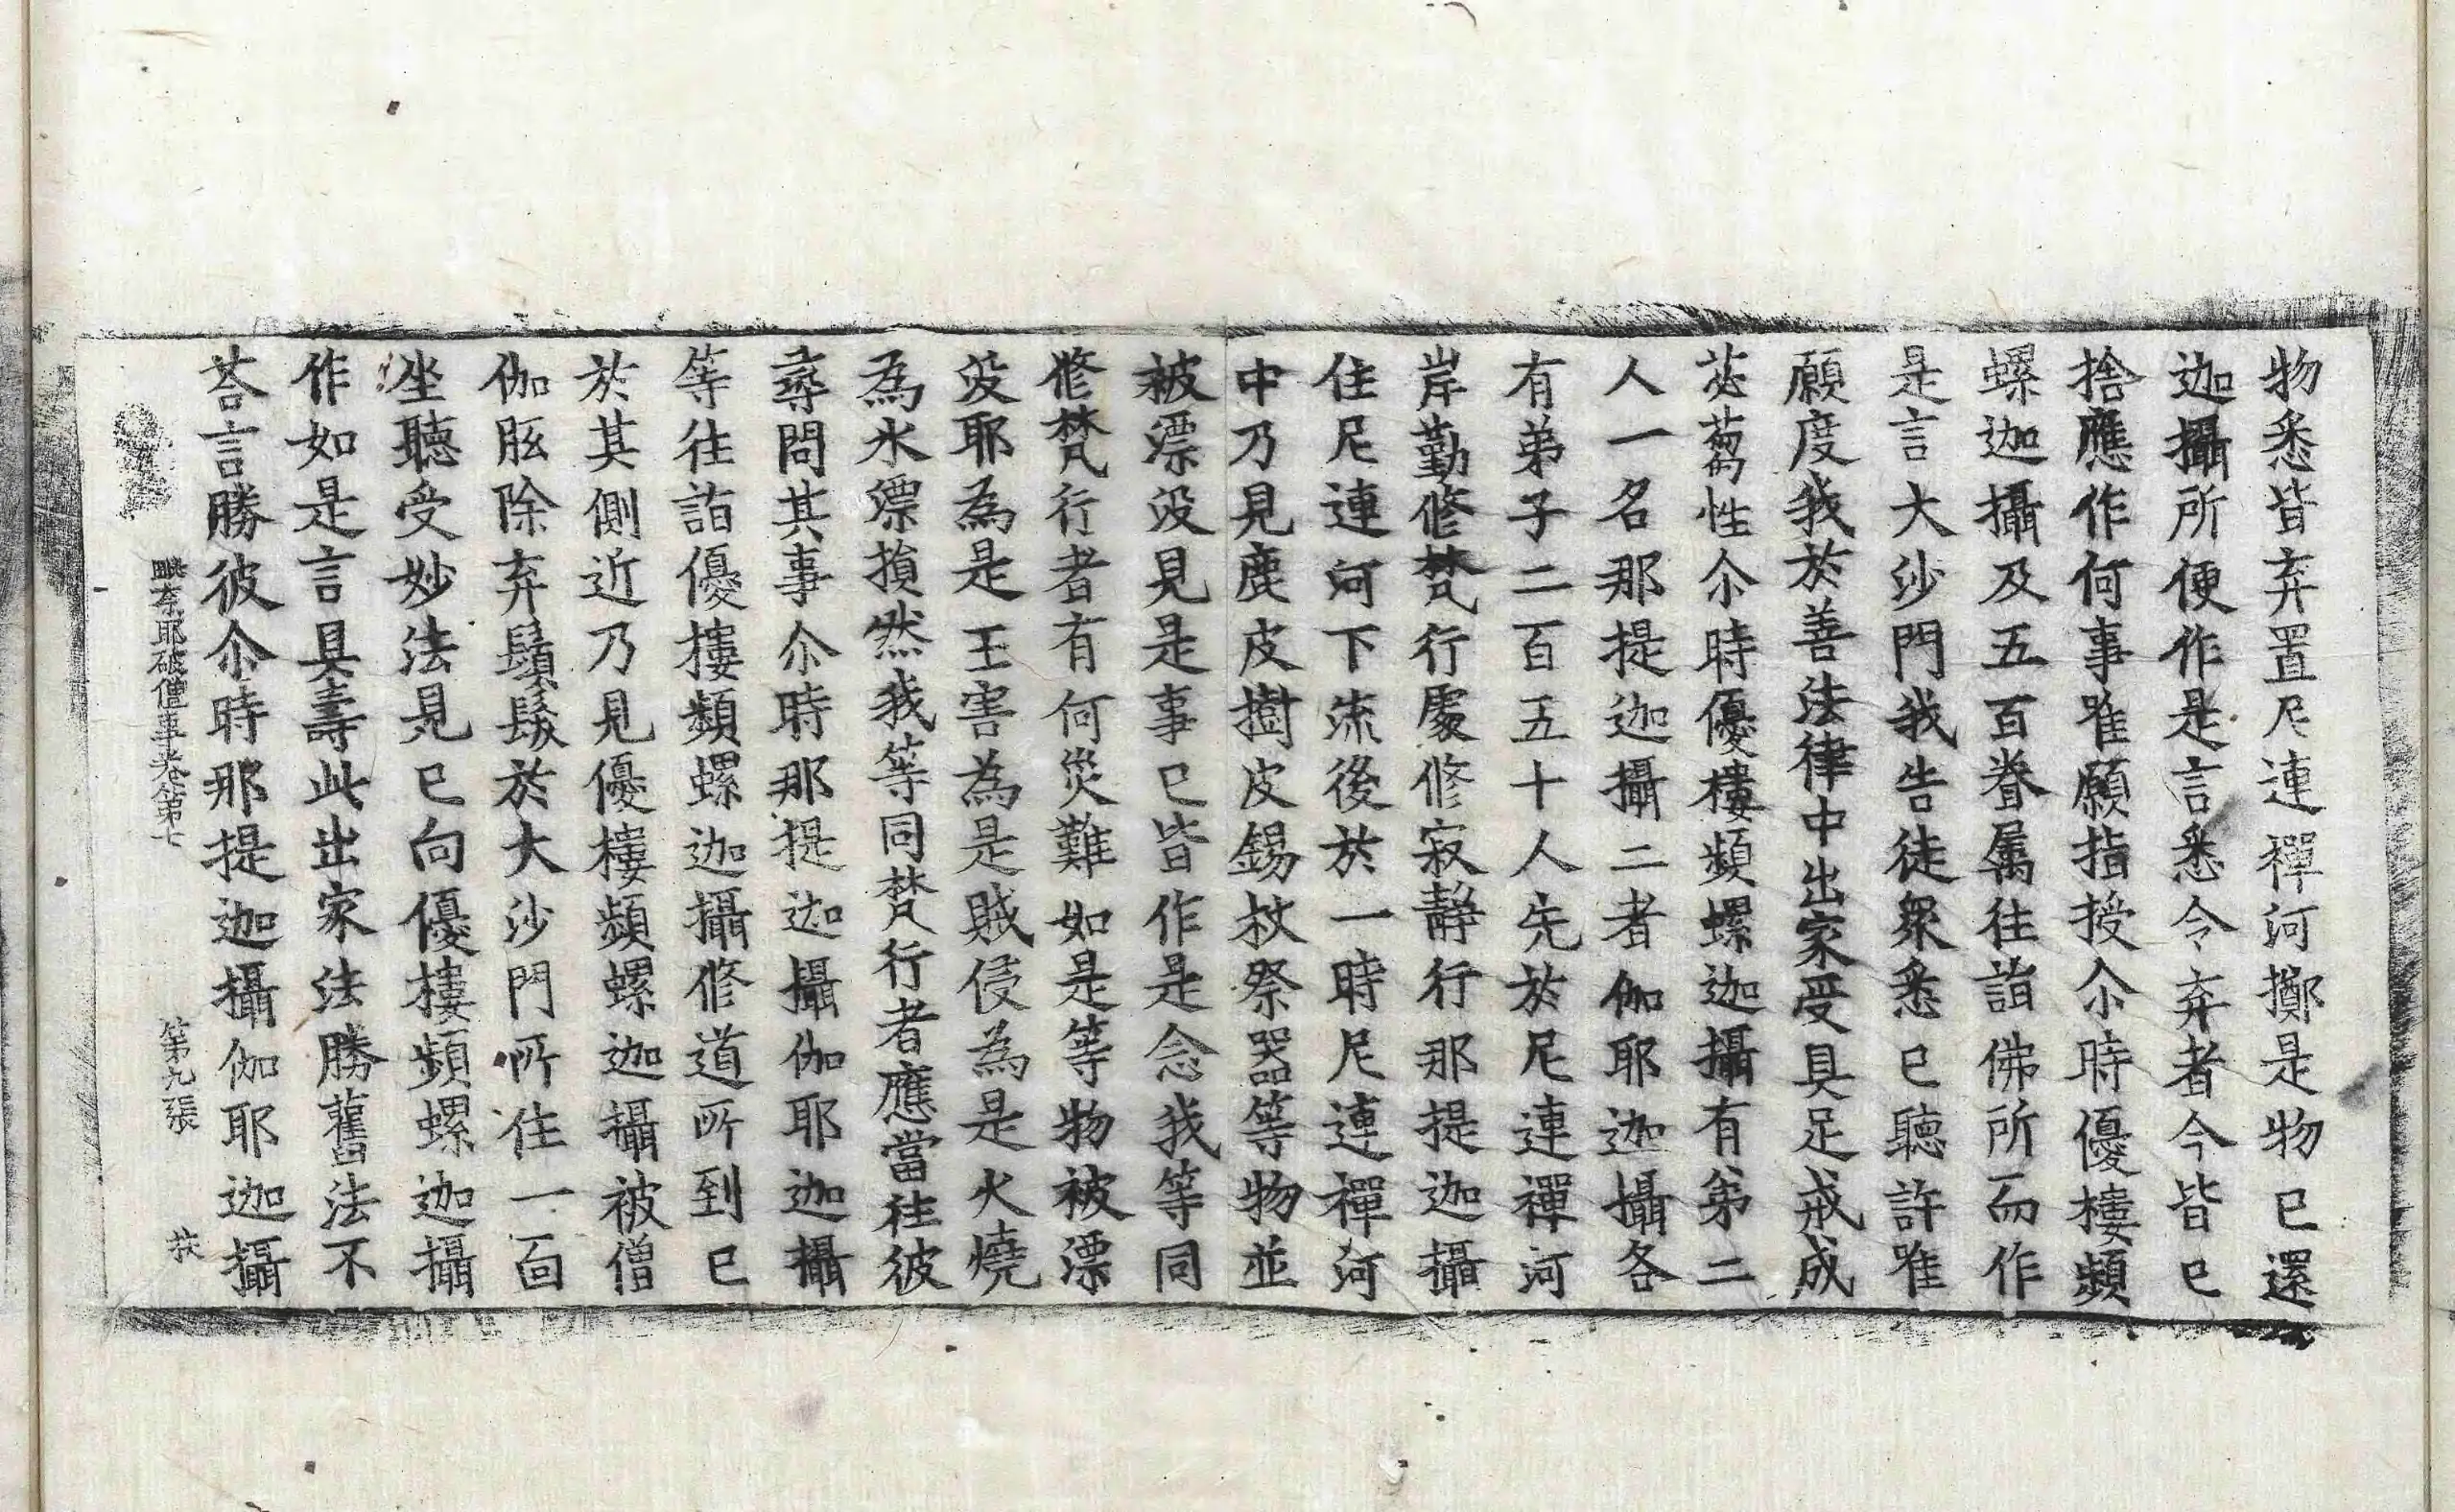 物悉皆弃置尼連禪河擲是物已還
迦攝所便作是言悉令弃者今皆已
捨應作何事唯願指授尒時優樓頻
螺迦攝及五百眷属往詣佛所而作
是言大沙門我告徒衆悉已聽許唯
願度我於善法律中出家受具足戒成
苾芻性尒時優樓頻螺迦攝有弟二
人一名那提迦攝二者伽耶迦攝各
有弟子二百五十人先於尼連禪河
岸勤修梵行處修寂静行那提迦攝
住尼連河下流後於一時尼連禪河
中乃見鹿皮樹皮錫杖祭器等物並
被漂没見是事已皆作是念我等同
修梵行者有何災難如是等物被漂
没耶為是王害為是賊侵為是火燒
為水漂損然我等同梵行者應當往彼
尋問其事尒時那提迦攝伽耶迦攝
等往詣優樓頻螺迦攝修道所到已
於其側近乃見優樓頻螺迦攝被僧
伽胝除弃鬚髮於大沙門所住一面
坐聽受妙法見已向優樓頻螺迦攝
作如是言具壽此出家法勝舊法不
荅言勝彼尒時那提迦攝伽耶迦攝
毗奈耶破僧事卷第七 第九張 扶